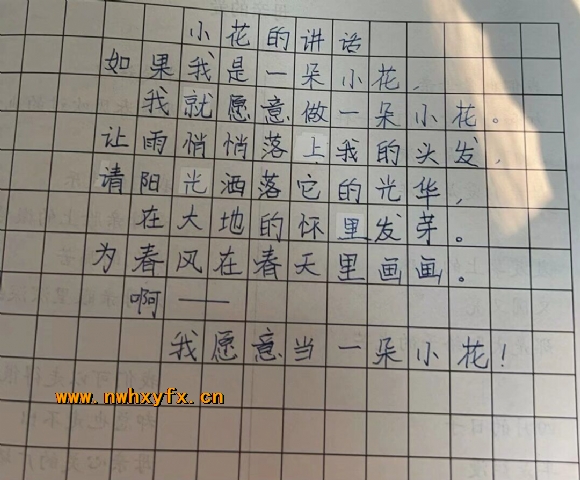 小花的讲话
如果我是一朵小花,
我就愿意做一朵小花。
让雨悄悄落上我的头发,
请阳光洒落它的光华,
在大地的怀里发芽。
为春风在春天里画画。
啊——
我愿意当一朵小花!
www.nwhxyfx.cn